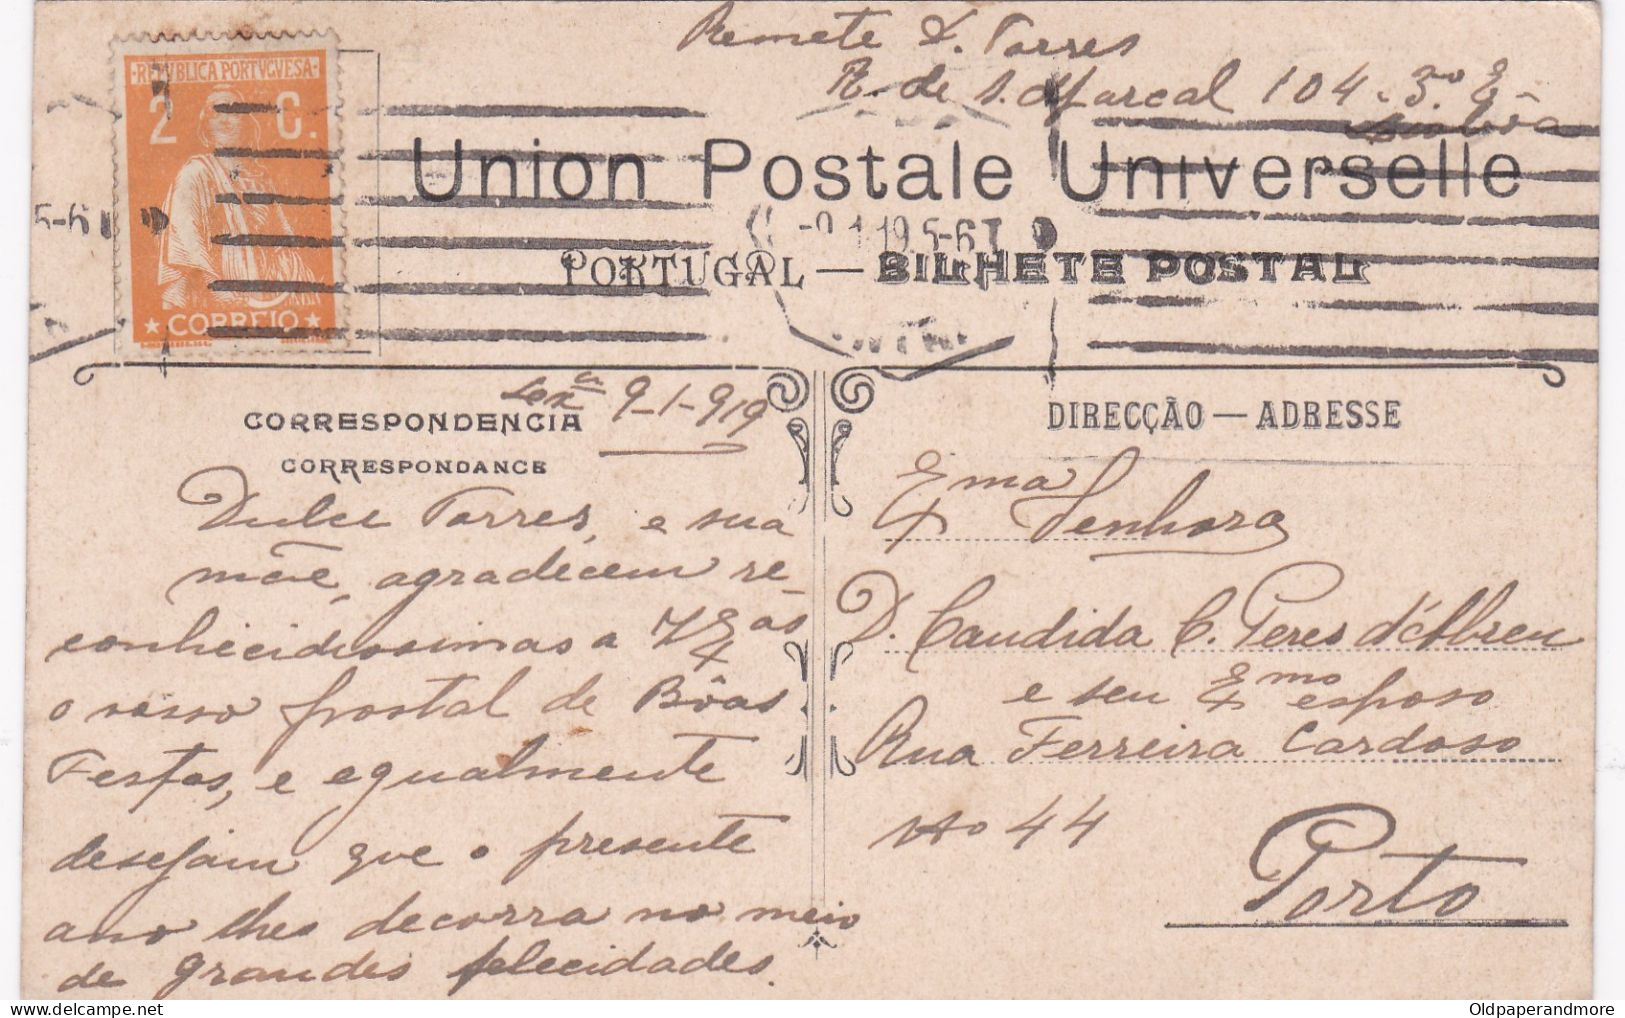 Remete D. Torres
R. de S. Marçal 104-3.º E.
Lisboa
REPVBLICA PORTVGVESA
2 C.
CORREIO
Union Postale Universelle
5-6
-9.1.19 5-6
PORTUGAL — BILHETE POSTAL
Lxª 9-1-919
CORRESPONDENCIA
CORRESPONDANCE
DIRECÇÃO — ADRESSE
Dulce Torres, e sua
mãe, agradecem re-
conhecidissimas a V. Ex.as
o vosso postal de Bôas
Festas, e egualmente
desejam que o presente
ano lhes decorra no meio
de grandes felecidades.
Exma Senhora
D. Candida C. Peres d'Abreu
e seu Exmo esposo
Rua Ferreira Cardoso
Nº 44
Porto
Oldpaperandmore